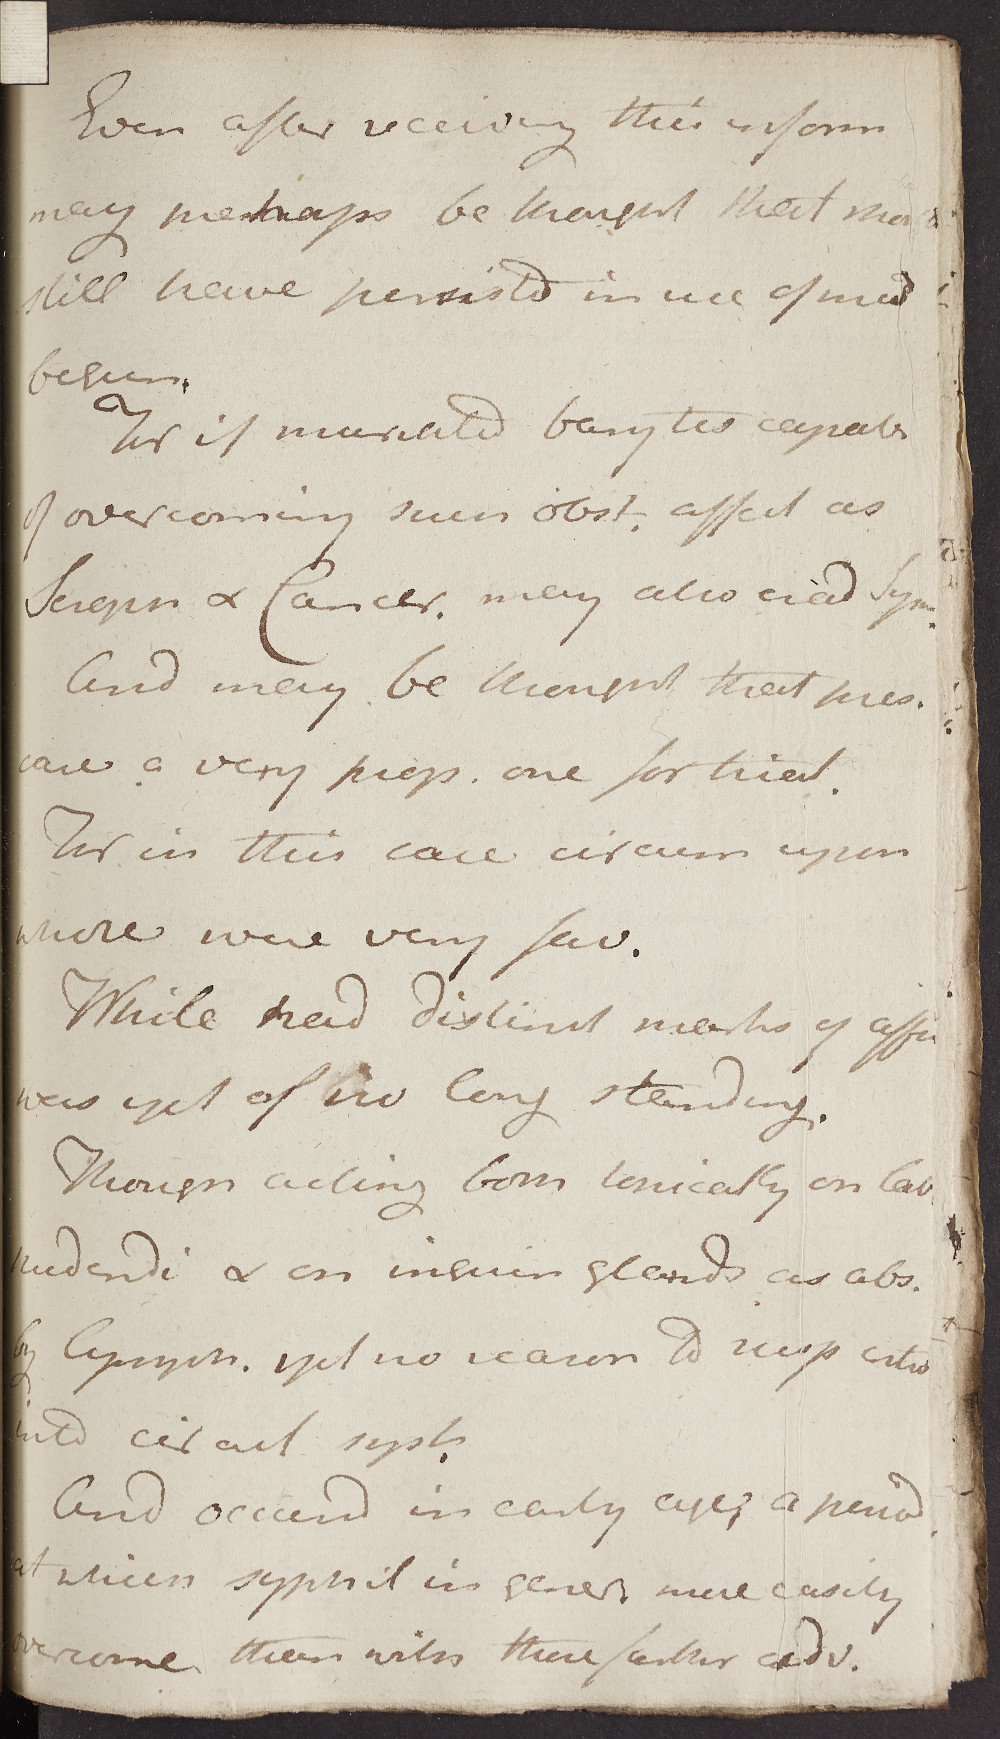 Even after receiving this inform
may perhaps be thought that
still have persistd in use of med
begun.
For if muriated barytes capable
of overcoming such obst. affect as
Scroph & Cancer. may also aid Sym.
And may be thought that pres.
case a very prop. one for trial.
For in this case circum upon
whole were very fav.
While had distinct marks of affec
was yet of no long standing.
Though acting both topically on lab
pudendi & on inguin glands as abs.
by lymph. yet no reason to susp
into circul syst.
And occurrd in early age, a period
at which syphil in gener more easily
overcome than with those farther adv.